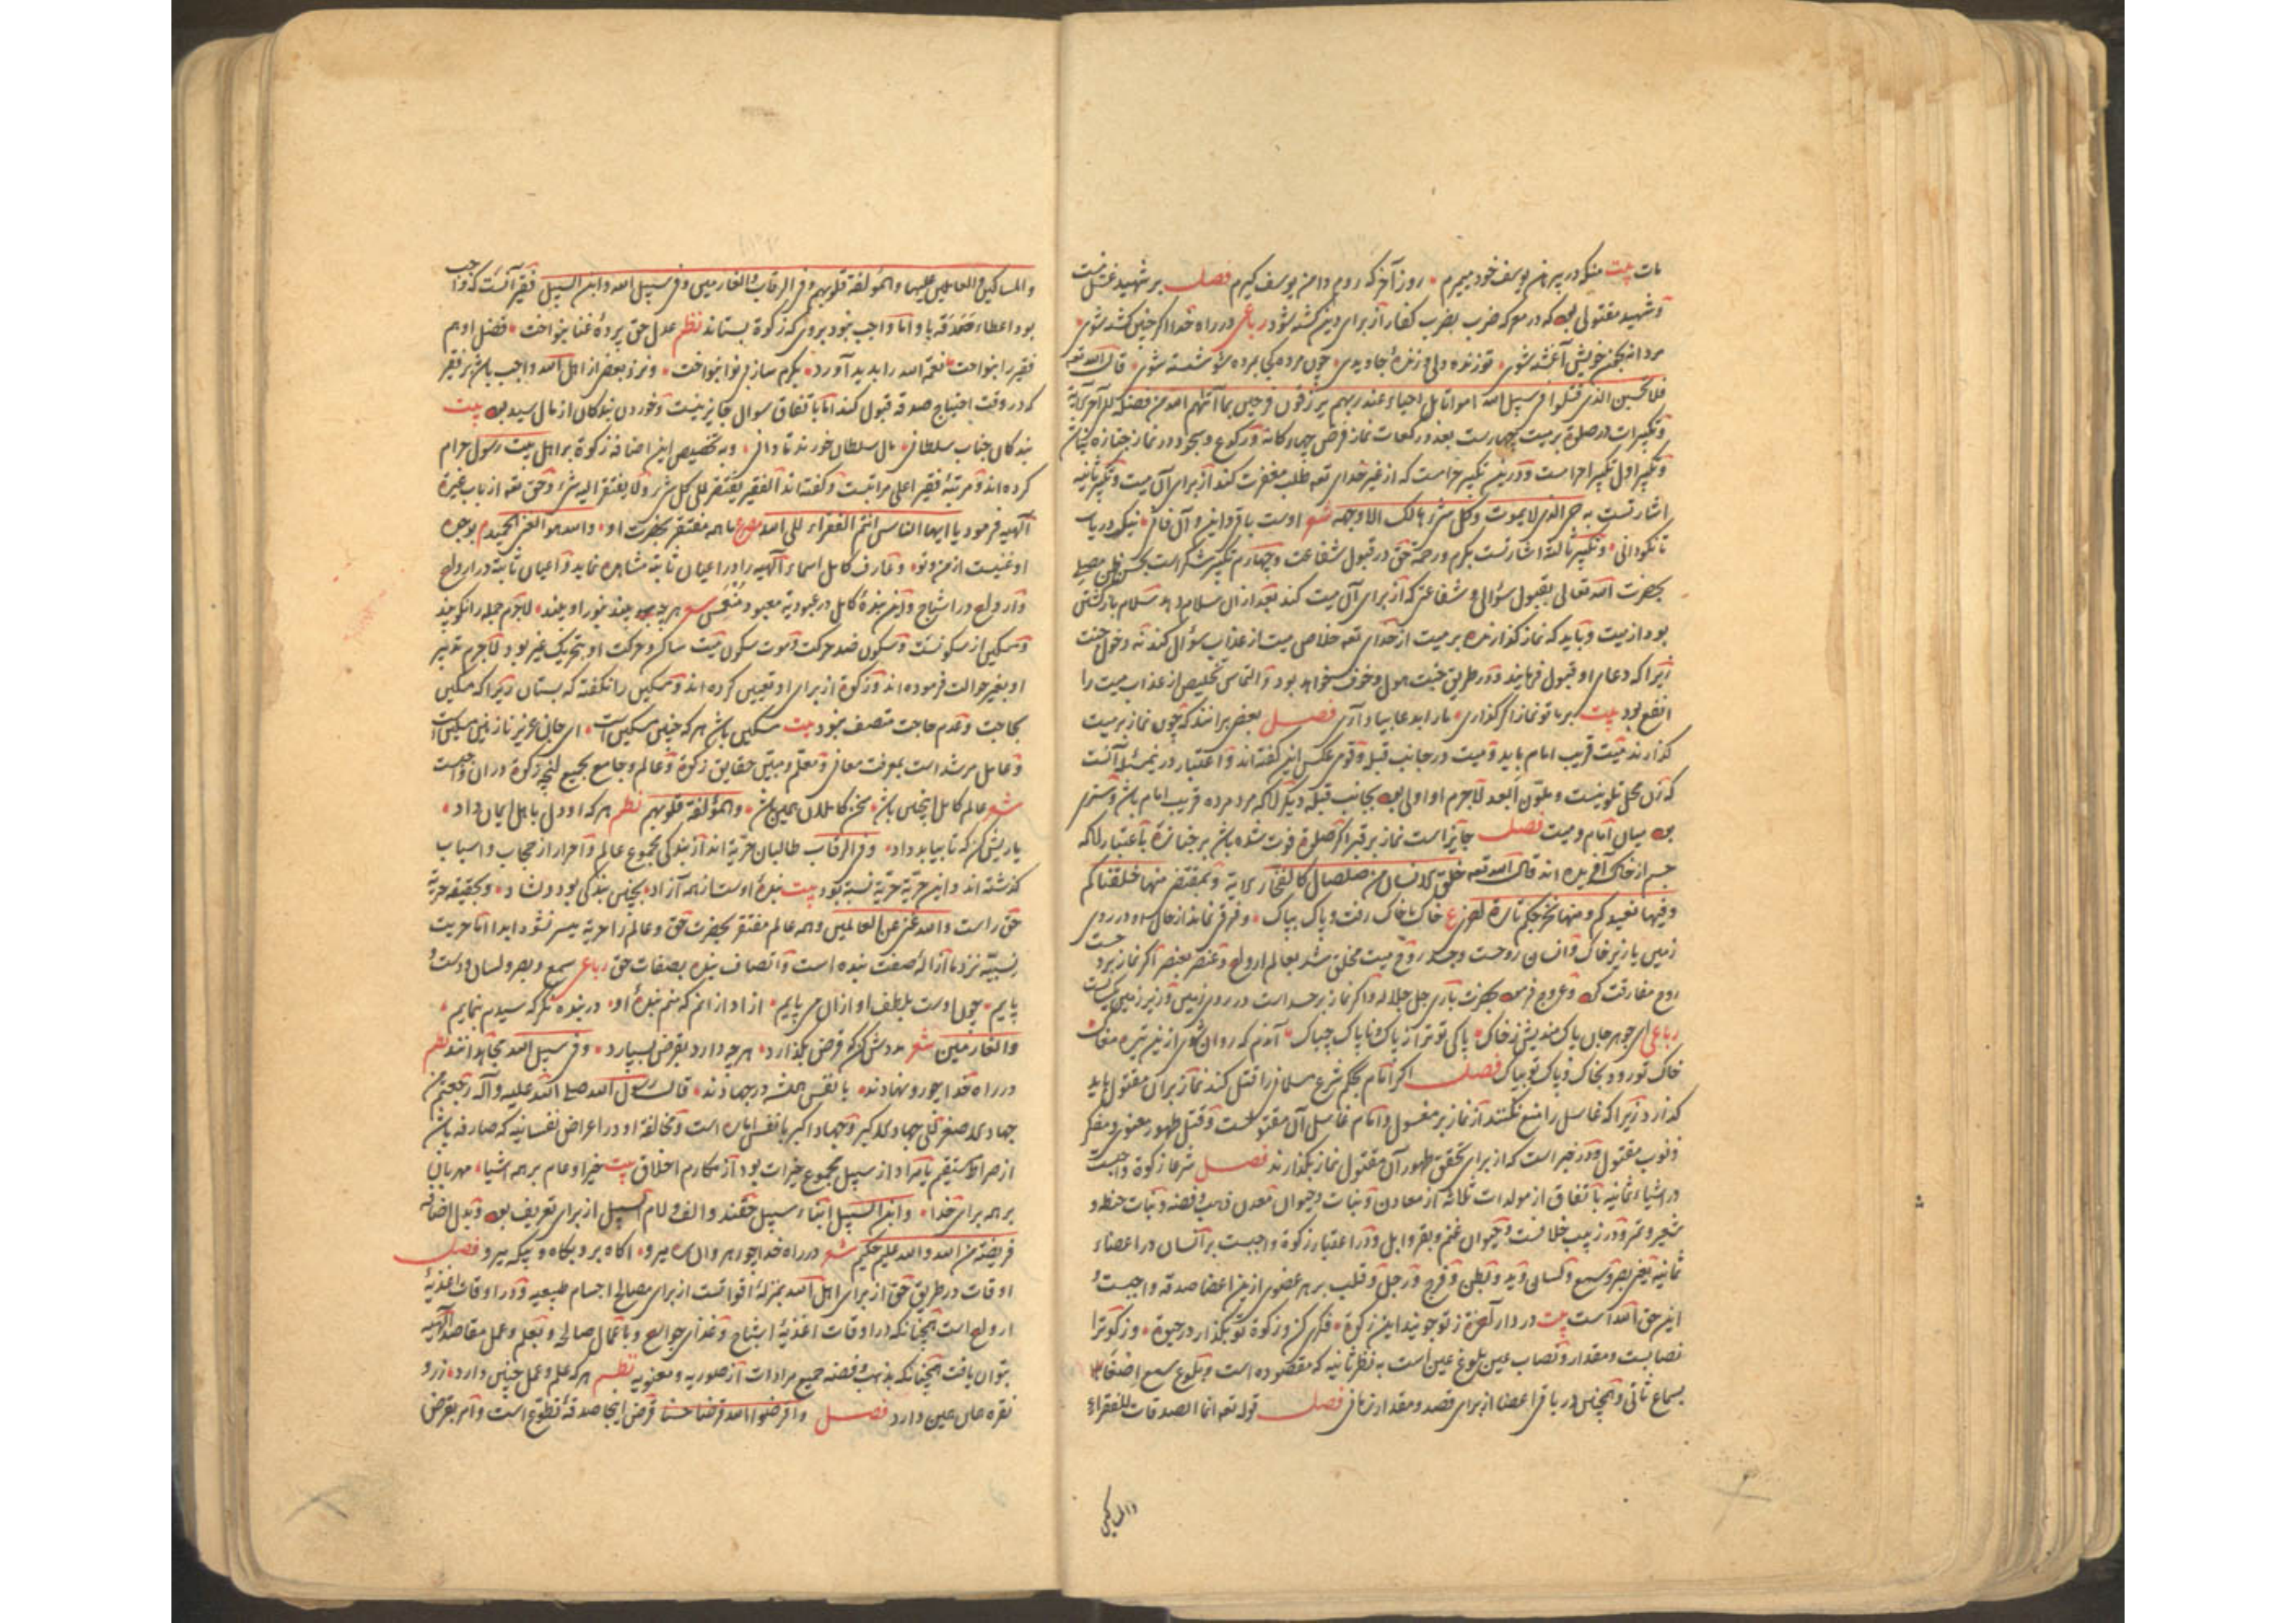 مات بیت منکه در پیرهن یوسف خود میمیرم روز آخر که روم دامن یوسف کیرم فصل بر شهید غسل نیست
و شهید مقتولی بود که در معرکه ضرب بضرب کفار از برای دین کشته شود رباعی در راه خدا اگر چنین کشته شوی
مردانه بخون خویش آغشته شوی تو زنده دلی و زندهٔ جاویدی چون مرده کجا بمرده شو شسته شوی قال الله تعه
فلا تحسبن الذین قتلوا فی سبیل الله امواتا بل احیاء عند ربهم یرزقون فرحین بما آتیهم الله من فضله
و تکبیرات در صلوة بر میت چهارست بعدد رکعات نماز فرض چهارکانه و رکوع و سجود در نماز جنازه
و تکبیر اول تکبیر احرامست و درین تکبیر حرامست که از غیر خدای تعه طلب مغفرت کند از برای آن میت و تکبیر ثانیه
اشارتست به حی الذی لا یموت و کل شیء هالک الا وجهه شعر اوست باقی و این و آن فانی نیک دریاب
تا نکو دانی و تکبیر ثالثه اشارتست بکرم و رحمة حق در قبول شفاعت و چهارم تکبیر شکر است بحسن ظن مصلی
بحضرت الله تعالی بقبول سؤال و شفاعتی که از برای آن میت کند بعد از آن سلام دهد سلام بازگشتن
بود از میت و باید که نماز گذارنده بر میت از خدای تعه خلاصی میت از عذاب سؤال کند نه دخول جنت
زیرا که دعای او قبول فرمایند و در طریق جنت هول و خوف خواهد بود و التماس تخلیص از عذاب میت را
انفع بود بیت بر ما تو نماز اگر گذاری ما را بدعا بیاد آری فصل بعضی برانند که چون نماز بر میت
گذارند میت قریب امام باید و میت در جانب قبله و قومی عکس این گفته اند و اعتبار درین مسئله آنست
که زن محل تلوینست و متلون ابعد لاجرم او اولی بود بجانب قبله دیگر آنکه مرد مرده قریب امام باشد و
بود میان امام و میت فصل جایز است نماز بر قبر اگر صلوة فوت شده باشد بر جنازه باعتبار آنکه
جسم از خاک آفریده اند قال الله تعه خلق الانسان من صلصال کالفخار و بمقتضی منها خلقناکم
و فیها نعیدکم و منها نخرجکم تارة اخری ع خاک با خاک رفت و پاک بپاک و فرقی نماند از خاک در روی
زمین یا زیر خاک و انسان روحست و جسد روح میت ملحق شد بعالم ارواح و عنصر بعنصر اگر نماز بر
روح مفارقت کرد و عروج فرمود بحضرت باری جل جلاله و اگر نماز بر جسد است در روی زمین و زیر زمین یکسانست
رباعی ای جوهر جان پاک مندیش ز خاک پاکی تو ترا از پاک و ناپاک چه باک آندم که روان شوی ازین تیره مغاک
خاک تو رود بخاک و پاک تو بپاک فصل اگر امام بحکم شرع مسلمانی را قتل کند نماز بر آن مقتول باید
گذارد زیرا که غاسل را منع نکنند از نماز بر مغسول و امام غاسل آن مقتولست و قتل طهور معنوی و مکفر
ذنوب مقتول و در خبر است که از برای تحقق طهور آن مقتول نماز بگذارند فصل شرعا زکوة واجبست
در اشیاء ثمانیه باتفاق از مولدات ثلاثه از معادن و نبات و حیوان معدن ذهب و فضه و نبات حنطه و
شعیر و تمر و در زبیب خلافست و حیوان غنم و بقر و ابل و در اعتبار زکوة واجبست بر انسان در اعضاء
ثمانیه یعنی بصر و سمع و لسان و ید و بطن و فرج و رجل و قلب بر هر عضوی ازین اعضا صدقه واجبست و
این حق الله است بیت در دار آخرة ز تو جویند این زکوة فکری کن و زکوة تو بگذار در حیوة و زکوة را
نصابیست و مقدار و نصاب عین بلوغ عین است به نظر ثانیه که مقصوده است و بلوغ سمع
بسماع ثانی و همچنین در باقی اعضا از برای قصد و مقدار زمانی فصل قوله تعه انما الصدقات للفقراء
والمساکین
والمساکین والعاملین علیها والمؤلفة قلوبهم وفی الرقاب والغارمین وفی سبیل الله وابن السبیل فقیر آنست که واجب
بود اعطاء صدقه باو اما واجب نبود بر وی که زکوة بستاند نظم عدل حق پردهٔ غنا بنواخت فضل او هم
فقیر را بنواخت نعمة الله را بدید آورد بکرم ساز بی نوا بنواخت و نزد بعضی از اهل الله واجب باشد بر فقیر
که در وقت احتیاج صدقه قبول کند اما باتفاق سوال جایز نیست و خوردن بندکان از مال سید بود بیت
بندکان جناب سلطانی مال سلطان خورند تا دانی و به تخصیص این اضافه زکوة بر اهل بیت رسول حرام
کرده اند و مرتبهٔ فقیر اعلی مراتبست و گفته اند الفقیر یفتقر الی کل شیء ولا یفتقر الیه شیء و حق تعه از باب غیرة
الهیه فرمود یا ایها الناس انتم الفقراء الی الله مصرع ما همه مفتقر بحضرت او والله هو الغنی الحمید بوجود
او غنیست از من و تو و عارف کامل اسماء الهیه را در اعیان ثابته مشاهده نماید و اعیان ثابته در ارواح
و ارواح در اشباح و این بندهٔ کامل در عبودیة معبود شعر هر چه بیند بنور او بیند لاجرم جمله را نکو بیند
و مسکین از سکونست و سکون ضد حرکت و موت سکون میت ساکن و حرکت او بتحریک غیر بود و لاجرم تدبیر
او بغیر حوالت فرموده اند و زکوة از برای او تعیین کرده اند و مسکین را نگفته که بستان زیرا که مسکین
بحاجت و عدم حاجت متصف نبود بیت مسکین باشد هر که چنین مسکین است ای جان عزیز نازنین مسکین است
و عامل مرشد است بمعرفت معانی و معلم و مبین حقایق زکوة و عالم و جامع بجمیع آنچه زکوة در آن واجبست
شعر عالم کامل اینچنین باشد سخن کاملان همین باشد والمؤلفة قلوبهم نظم هر که او دل باهل ایمان داد
یاریش کن که تا بیابد داد وفی الرقاب طالبان حریة اند از بندگی مجموع عالم و احرار از حجاب و اسباب
گذشته اند و این حریة حریة نسبیه بود بیت بندهٔ اوست از همه آزاد بچنین بندگی بود دلشاد و بحقیقه حریة
حق راست والله غنی عن العالمین و همه عالم مفتقر بحضرت حق و عالم را حریة میسر نشود ابدا اما حریت
نسبیه نزد ما ازالهٔ صفت بنده است و اتصاف بنده بصفات حق رباعی سمع و بصر و لسان و دست و
پاییم چون اوست بلطف او از آن می پاییم از او از آنم که منم بندهٔ او در بنده نگر که سیدم بنمایم
والغارمین شعر مددش کن که قرض بگذارد هر چه دارد بقرض بسپارد وفی سبیل الله مجاهدانند نظم
در راه خدا چو رو نهادند با نفس همیشه در جهادند قال رسول الله صلی الله علیه وآله رجعتم من
جهاد الاصغر الی جهاد الاکبر و جهاد اکبر با نفس اماره است و مخالفة او در اعراض نفسانیه که صارفه باشد
از صراط مستقیم یا مراد از سبیل مجموع خیرات بود از مکارم اخلاق بیت خیر او عام بر همه اشیا مهربان
بر همه برای خدا وابن السبیل ابناء سبیل حقند و الف و لام السبیل از برای تعریف بود و بدل اضافه
فریضة من الله والله علیم حکیم شعر در راه خدا چو رهروان ره میرو آگاه برو بگاه و بیگه میرو فصل
اوقات در طریق حق از برای اهل الله بمنزلهٔ اقواتست از برای مصالح اجسام طبیعیه و در اوقات اغذیهٔ
ارواح است همچنانکه در اوقات اغذیهٔ اشباح و غذای جوارح و باعمال صالح و بعلم و عمل مقاصد الهیه
بتوان یافت همچنانکه بذهب و فضه جمیع مرادات از صوریه و معنویه نظم هر که علم و عمل چنین دارد زر و
نقره همان عین دارد فصل واقرضوا الله قرضا حسنا قرض اینجا صدقهٔ تطوع است و امر بقرض